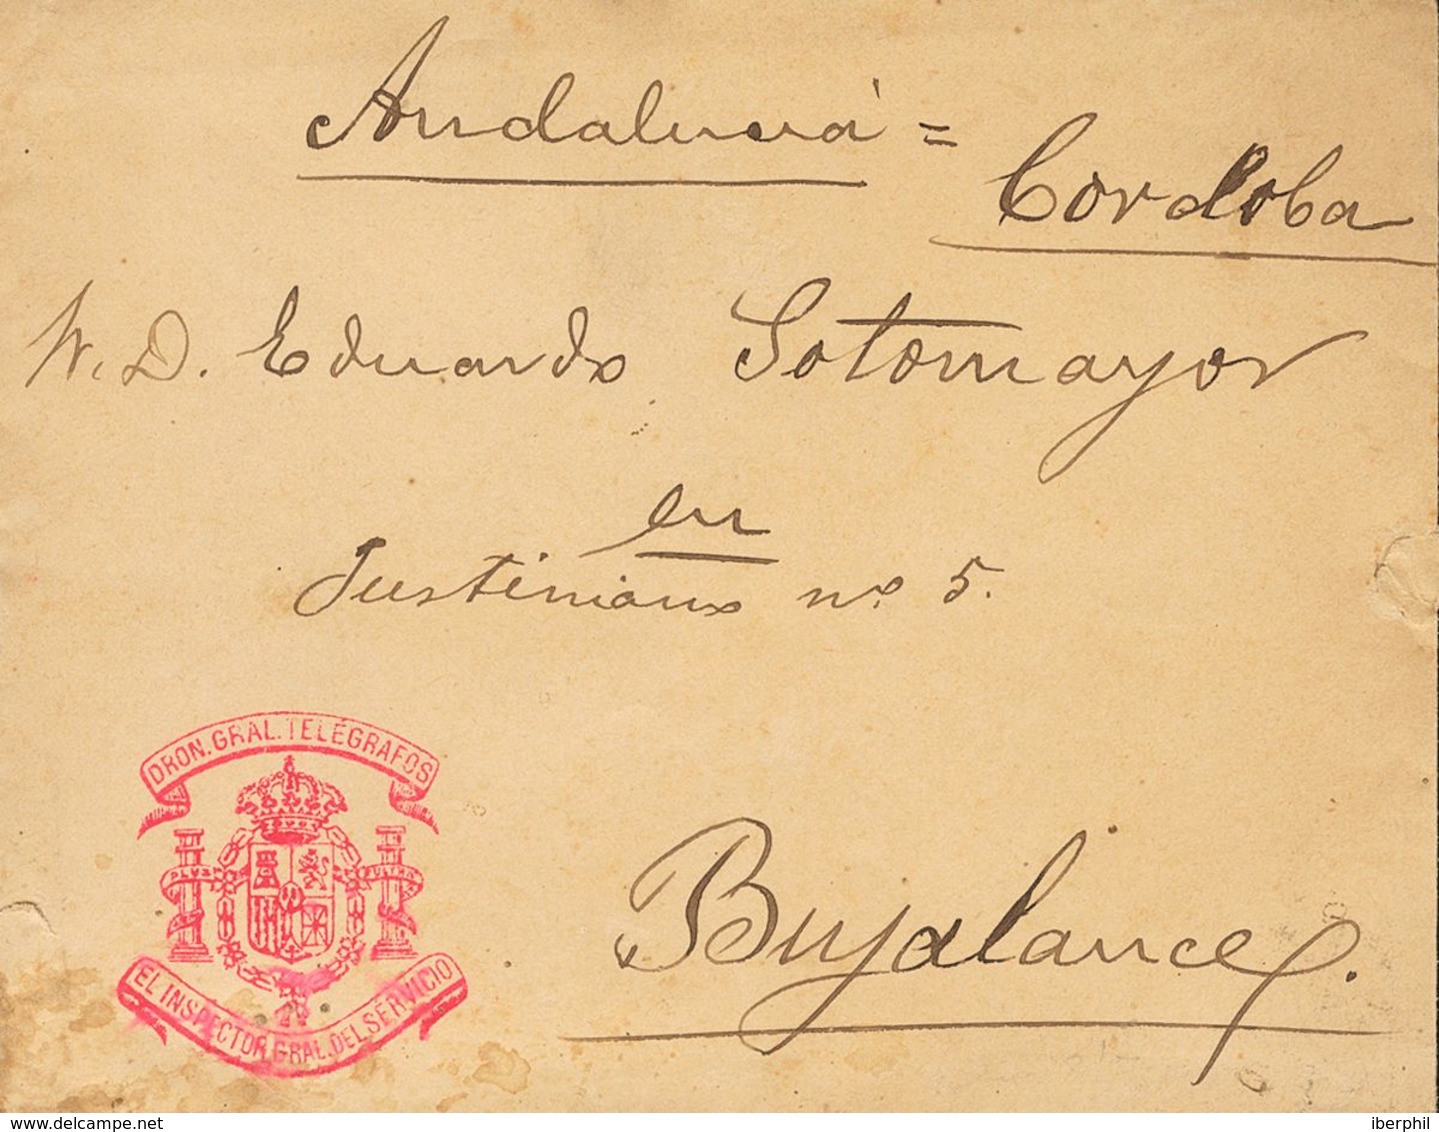 Andalucia =
Cordoba
Sr. D. Eduardo Sotomayor
en
Justiniano nº 5.
DRON. GRAL. TELÉGRAFOS
PLVS ULTRA
EL INSPECTOR GRAL. DEL SERVICIO
Bujalance.
delcampe.net
iberphil